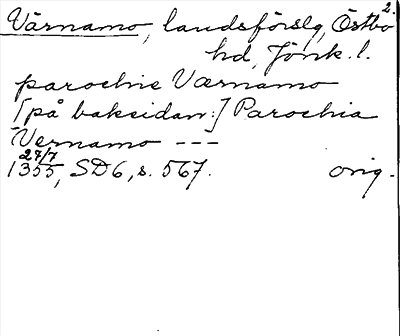 2.
Värnamo, landsförslg, Östbo
hd, Jönk. l.
parochie Værnamo
[på baksidan:] Parochia
Vernamo ---
27/7
1355, SD6, s. 567. orig.